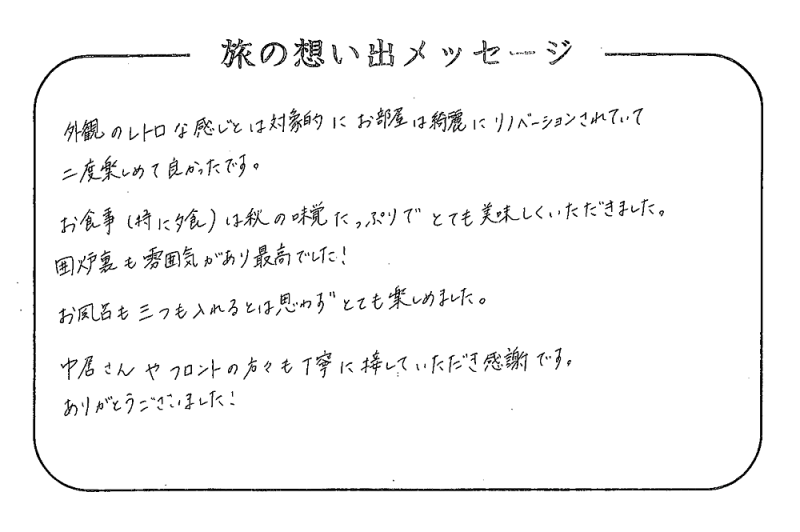 旅の想い出メッセージ
外観のレトロな感じとは対象的にお部屋は綺麗にリノベーションされていて
二度楽しめて良かったです。
お食事(特に夕食)は秋の味覚たっぷりでとても美味しくいただきました。
囲炉裏も雰囲気があり最高でした!
お風呂も三つも入れるとは思わずとても楽しめました。
中居さんやフロントの方々も丁寧に接していただき感謝です。
ありがとうございました!